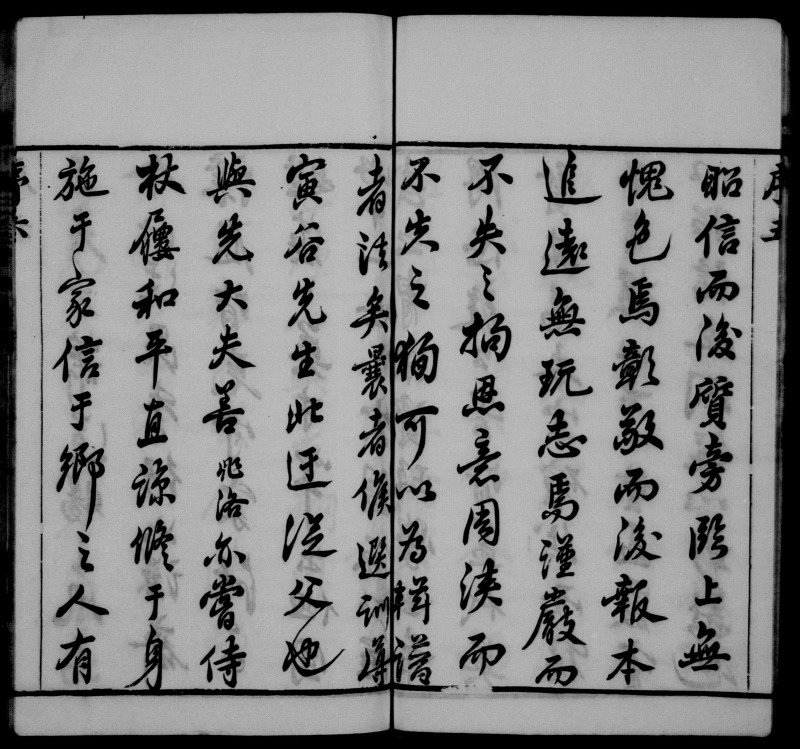 序五
昭信而後質旁臨上無
愧色焉彰敬而後報本
追遠無玩志焉謹嚴而
不失之拘恩意周浹而
不失之徇可以為輯譜
者法矣曩者候選訓導
寅谷先生此迂從父也
與先大夫善兆洛亦嘗侍
杖屨和平直諒修于身
施于家信于鄉之人有
序六